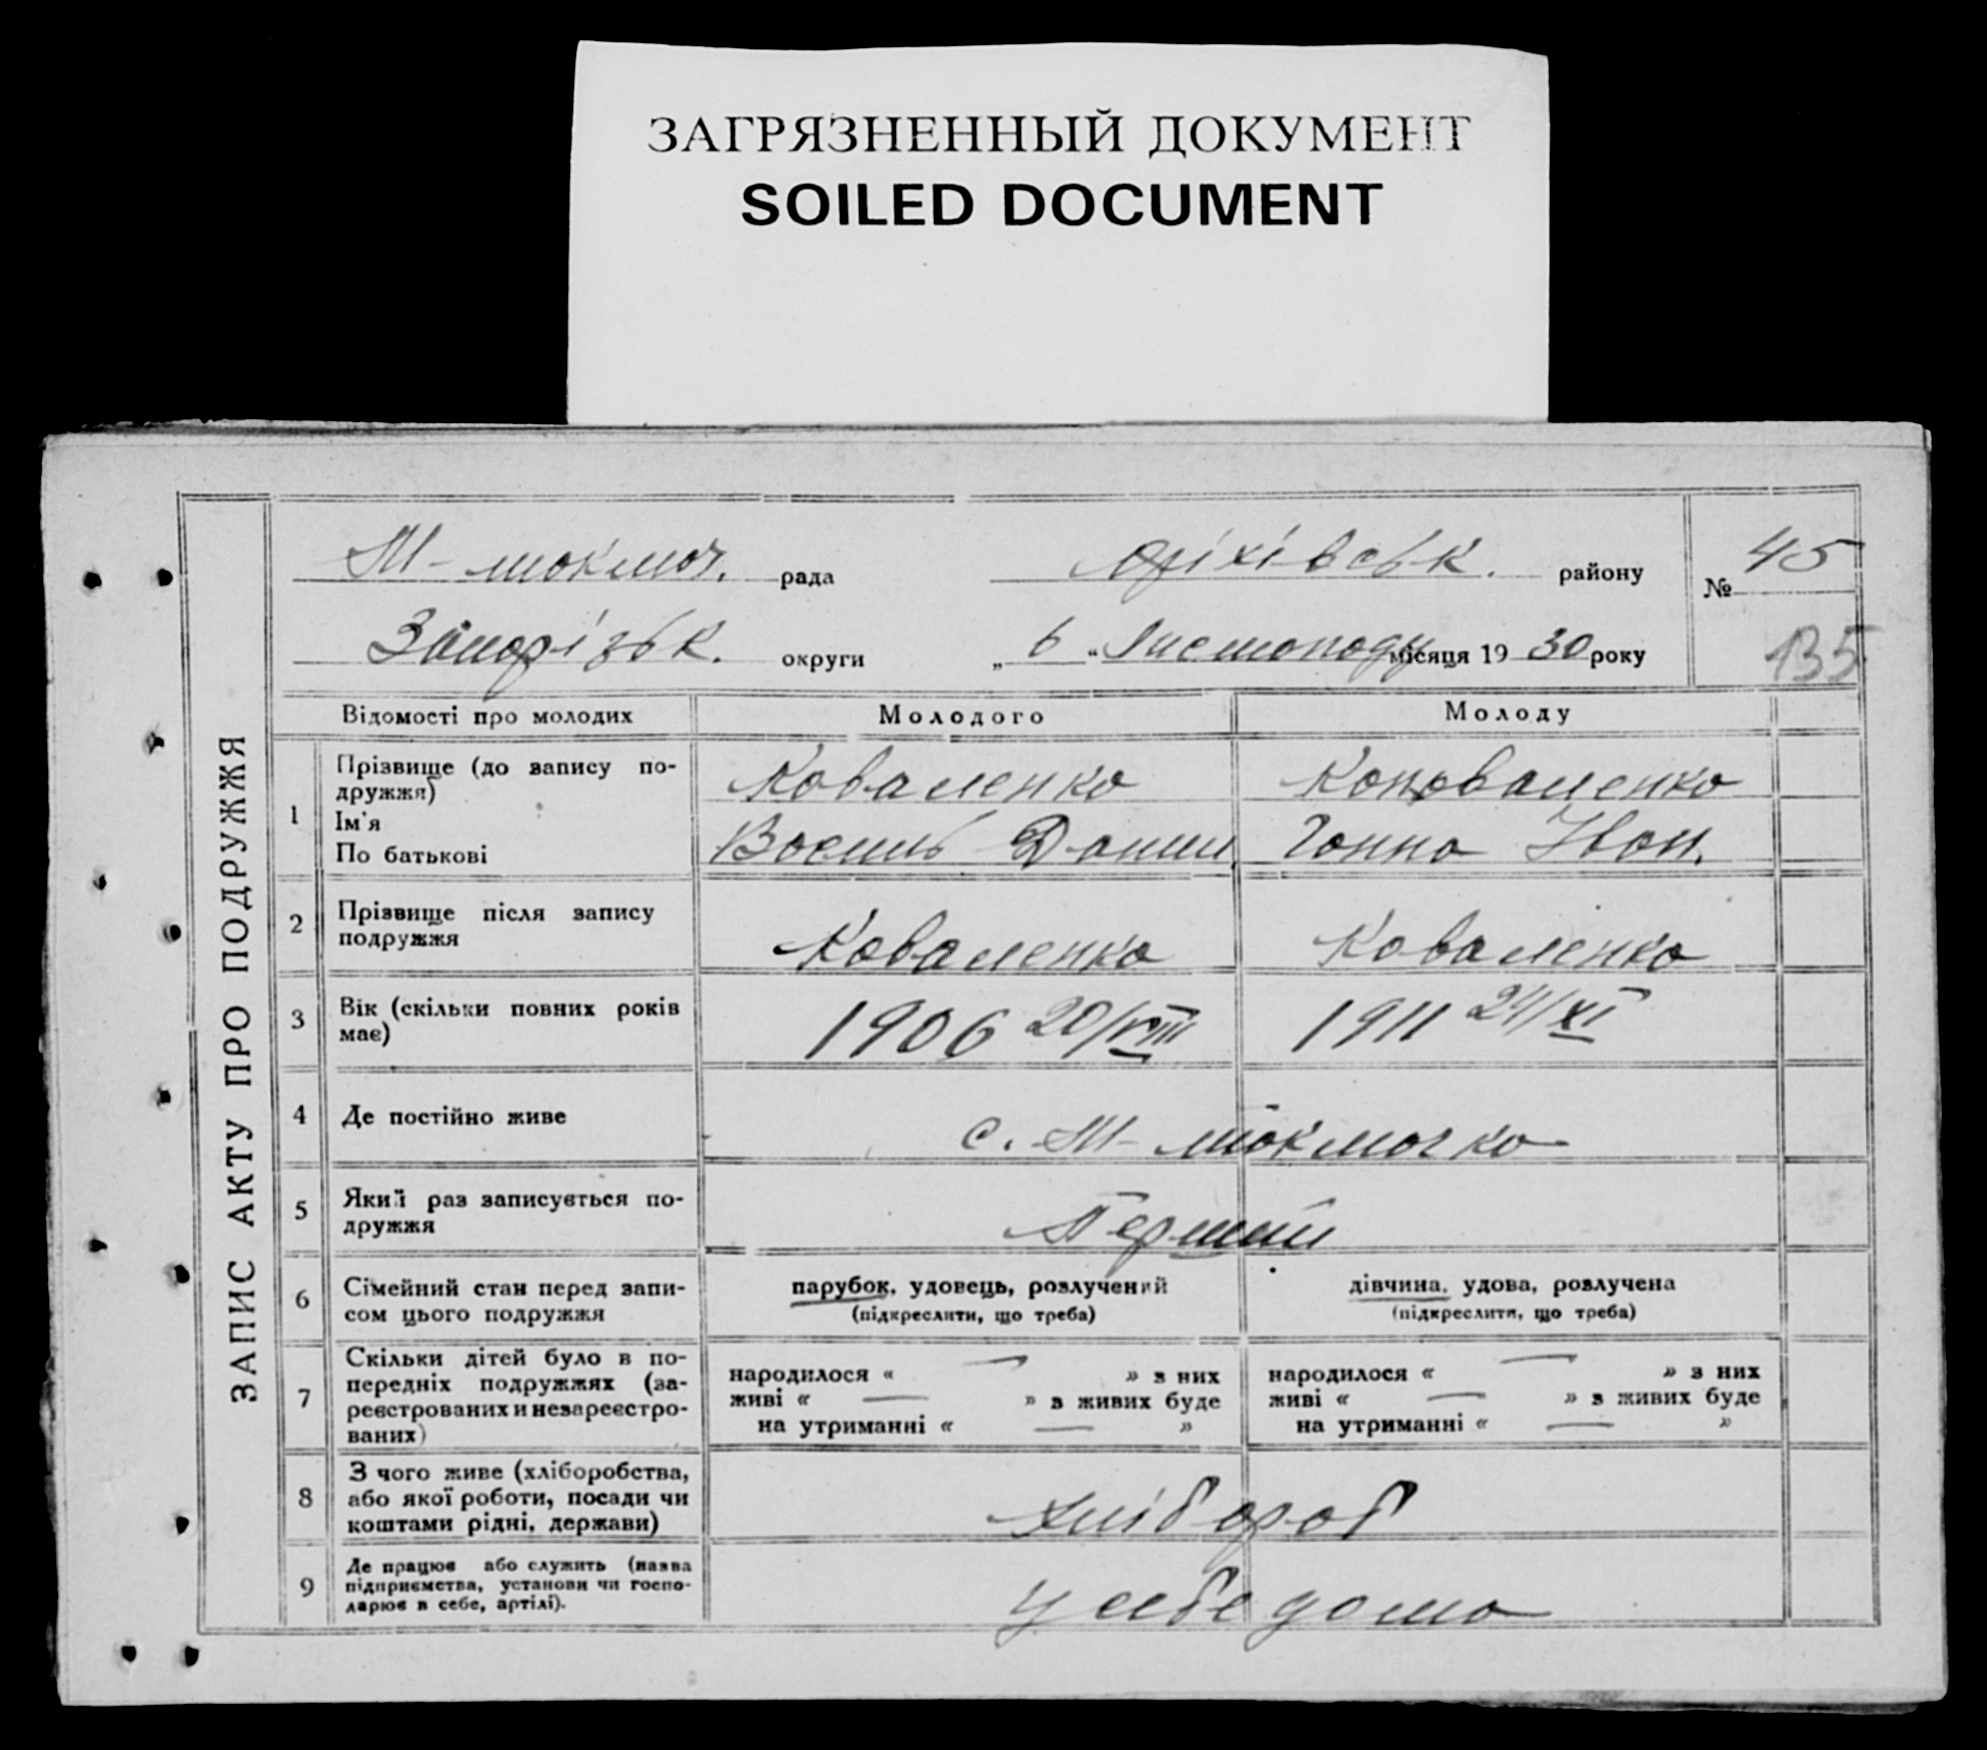 ЗАГРЯЗНЕННЫЙ ДОКУМЕНТ
SOILED DOCUMENT
ЗАПИС АКТУ ПРО ПОДРУЖЖЯ
М-токмач. рада Оріхівськ. району № 45
Запорізьк. округи „ 6 “ Листопаду місяця 19 30 року 135
Відомості про молодих Молодого Молоду
1 Прізвище (до запису по-
дружжя) Коваленко Коноваленко
Ім'я
По батькові Василь Данил. Ганна Іван.
2 Прізвище після запису
подружжя Коваленко Коваленко
3 Вік (скільки повних років
має) 1906 20/VIII 1911 24/XI
4 Де постійно живе с. М-токмачка
5 Який раз записується по-
дружжя Перший
6 Сімейний стан перед запи-
сом цього подружжя
парубок, удовець, розлучений дівчина, удова, розлучена
(підкреслити, що треба) (підкреслити, що треба)
7 Скільки дітей було в по-
передніх подружжях (за-
реєстрованих и незареєстро-
ваних)
народилося « — » з них народилося « — » з них
живі « — » з живих буде живі « — » з живих буде
на утриманні « — » на утриманні « — »
8 З чого живе (хліборобства,
або якої роботи, посади чи
коштами рідні, держави) хлібороб
9 Де працює або служить (назва
підприємства, установи чи госпо-
дарює в себе, артілі). у себе дома